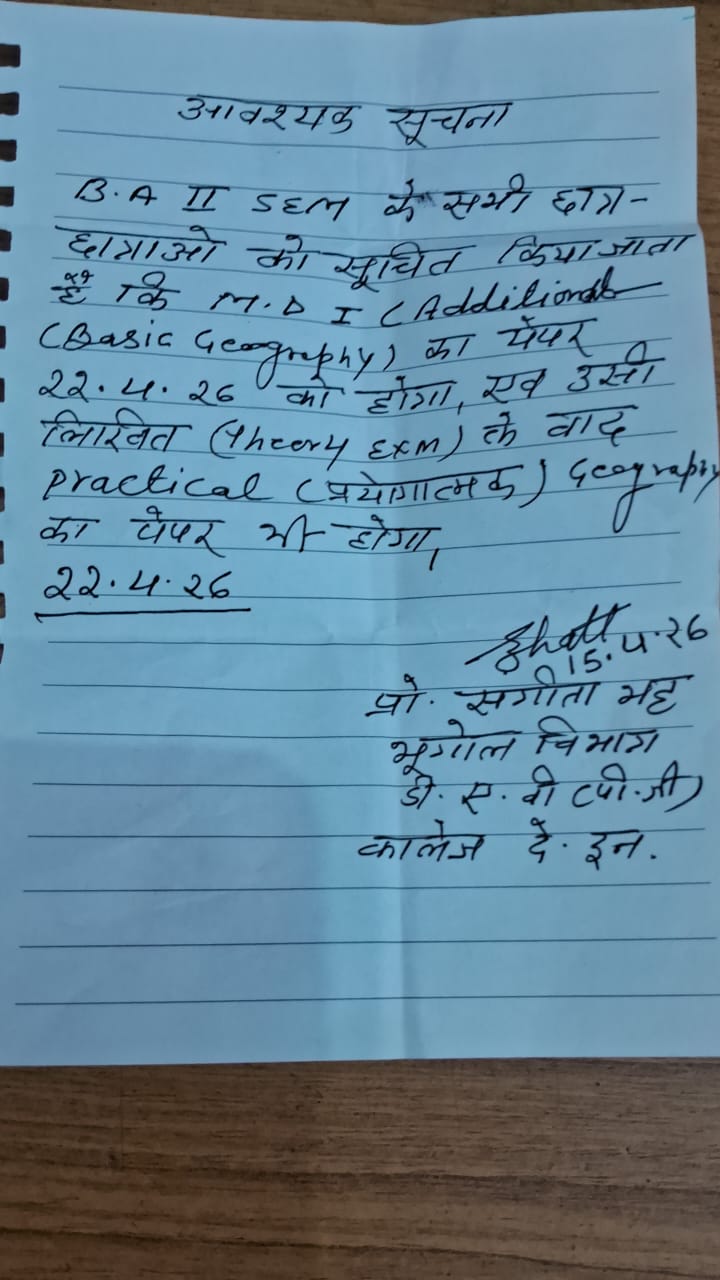 आवश्यक सूचना
B.A II SEM के सभी छात्र-
छात्राओ को सूचित किया जाता
है कि M.D I (Additional
(Basic Geography) का पेपर
22.4.26 को होगा, एव उसी
लिखित (Theory EXM) के बाद
Practical (प्रयोगात्मक) Geography
का पेपर भी होगा,
22.4.26
Bhatt
15.4.26
प्रो. सगीता भट्ट
भूगोल विभाग
डी. ए. वी (पी.जी)
कालेज दे. इन.